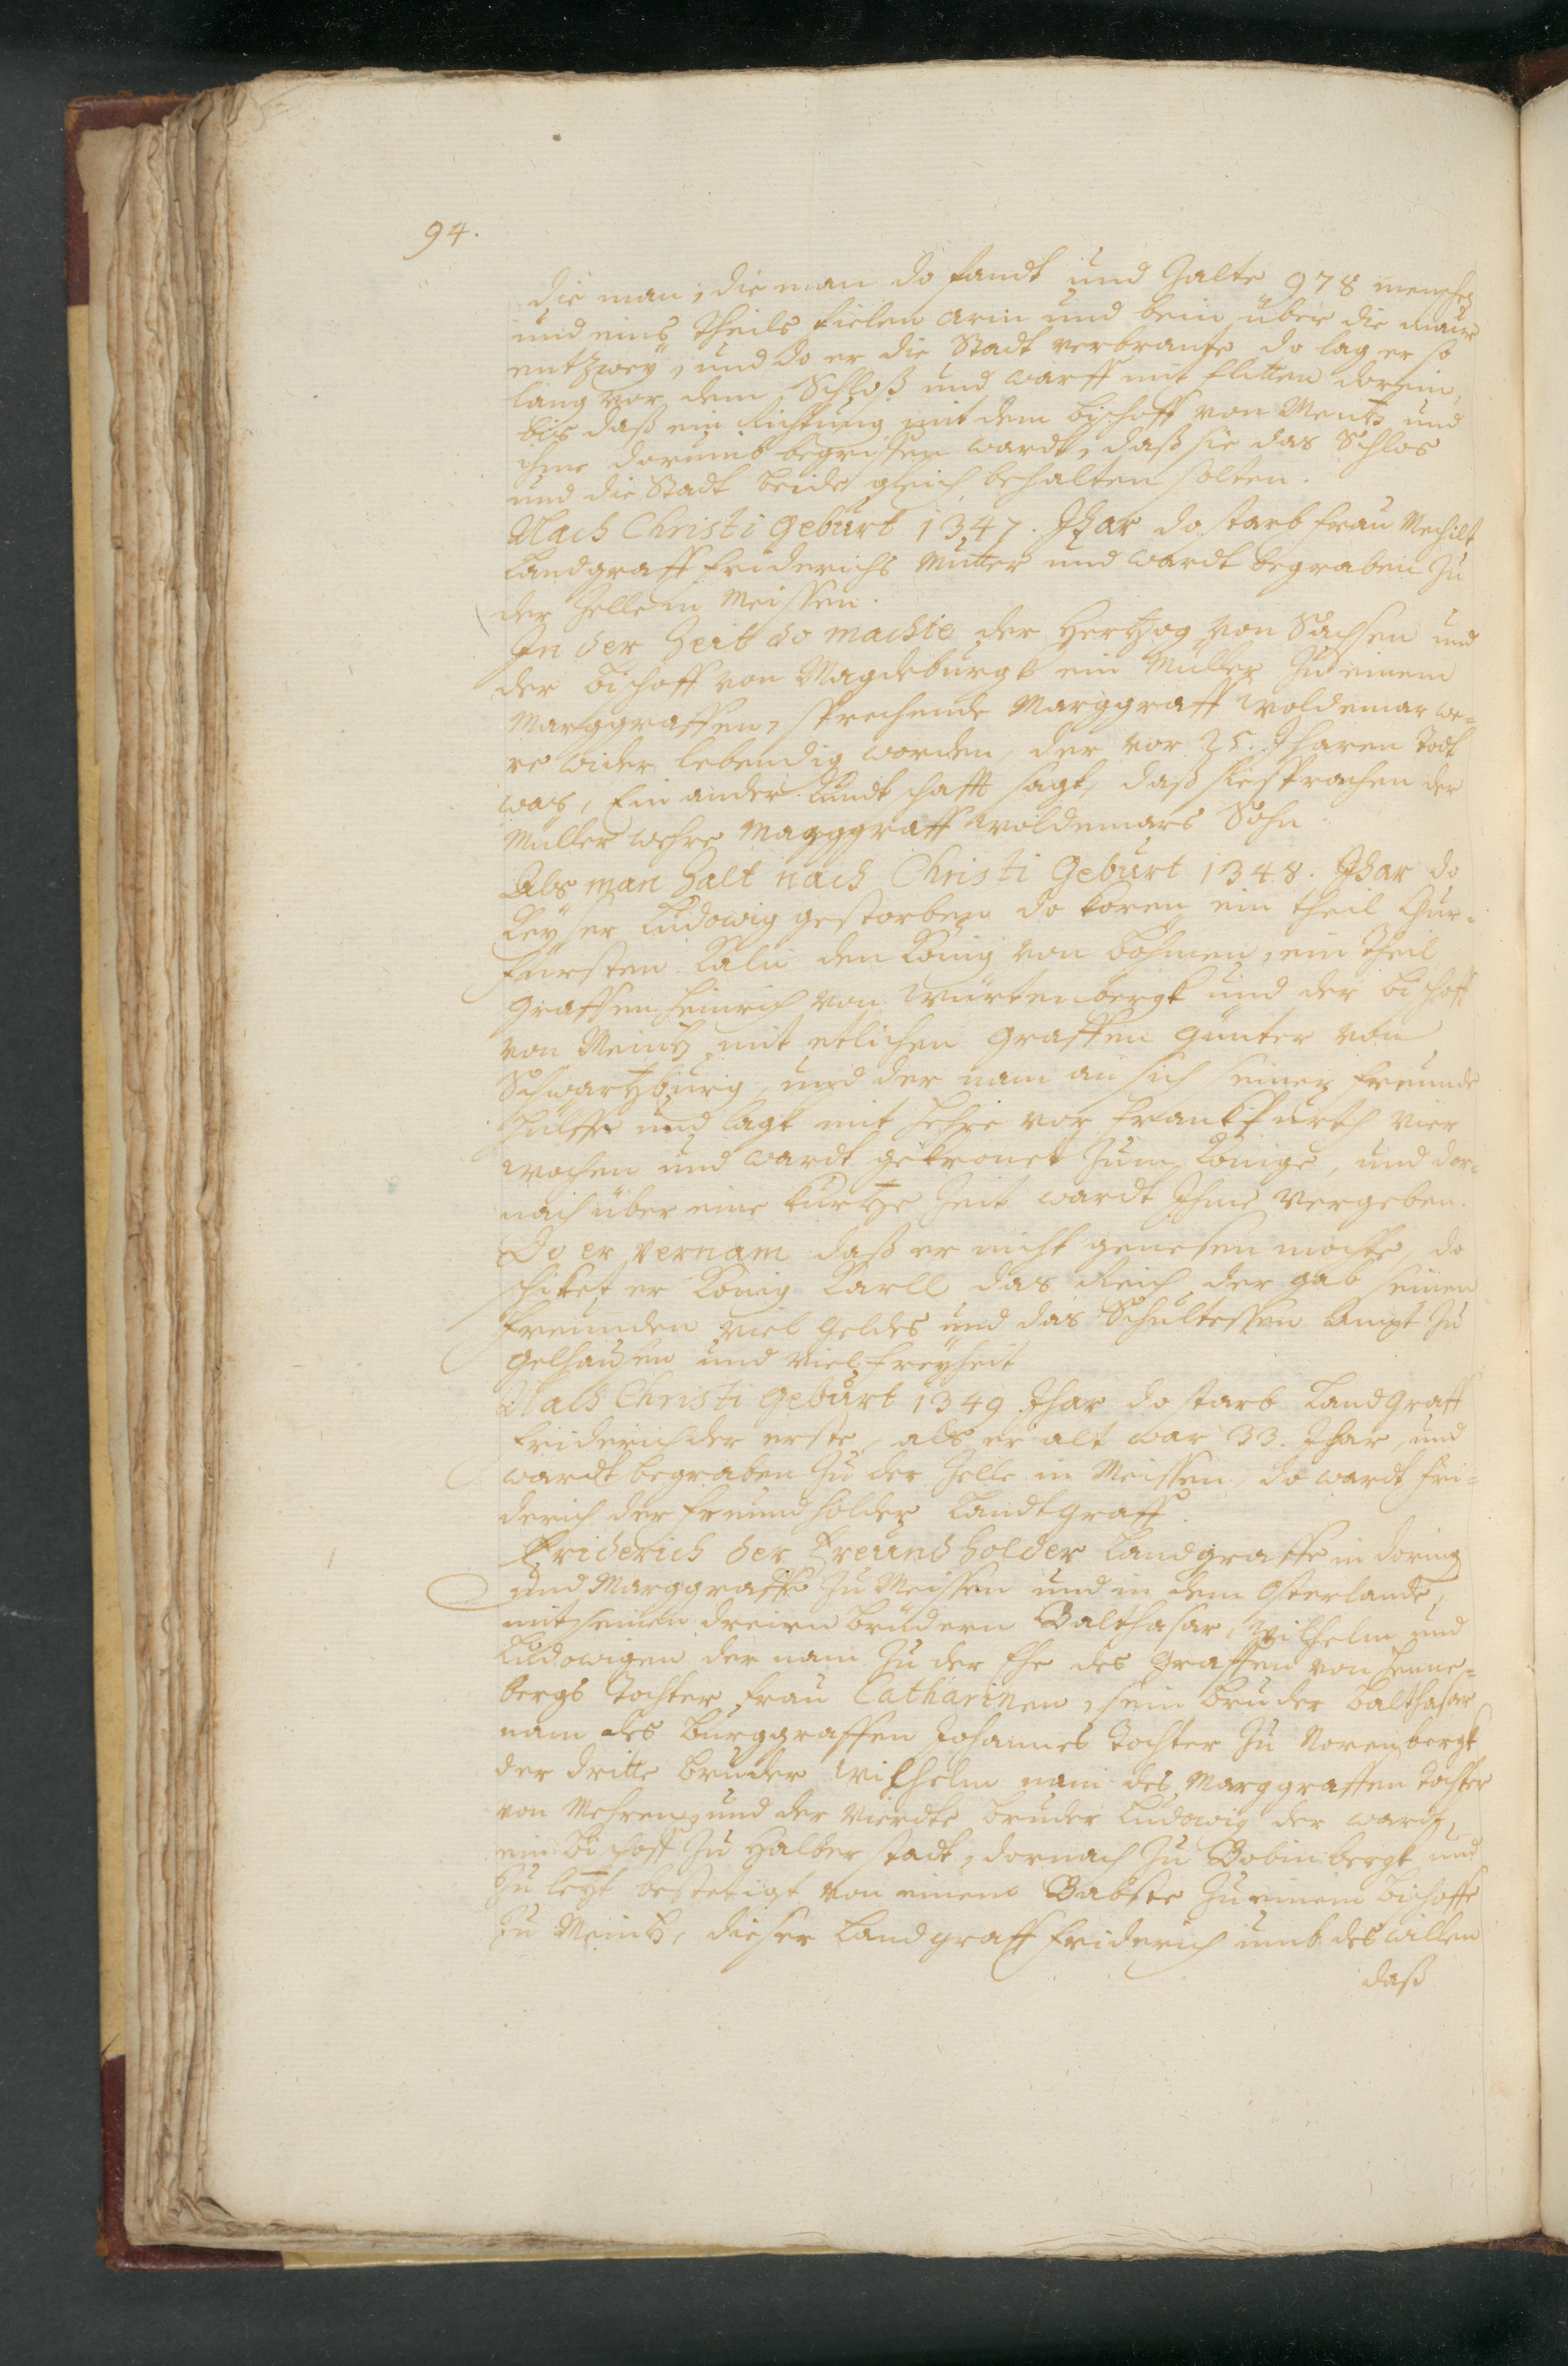 94.
die man, die man do fandt und Zalte 978 menschen
und eins theils fielen arm und bein über die maur
entzwey, und do er die Stadt verbrante do lag er so
lang vor dem Schloß und warff mit flitten dorein,
bis daß ein Richtung mit dem bischoff von Mentz und
ihme dorumb begriffen wardt, daß sie das Schlos
und die Stadt beide gleich behalten solten.
Nach Christi Geburt 1347. Jhar do starb frau Mechilt
Landgraff friderichs Mutter und wardt begraben Zu
der Zelle in Meissen.
In der Zeit do machte der Hertzog von Sachsen und
der bischoff von Magdeburgk ein Müller Zu einem
Marggraffen, sprechende Marggraff Woldemar we=
re wider lebendig worden, der vor 25. Jharen Todt
was, Ein ander kundtschafft sagt, daß sie sprachen der
Müller wehre Marggraff Woldemars Sohn.
Als man Zalt nach Christi Geburt 1348. Jhar do
Keyser Ludowig gestorben do koren ein theil Chur=
fürsten den König von böhmen, ein theil
Graffen Heinrich von Würtenbergk und der bischoff
von Meintz mit etlichen Graffen Günter von
Schwartzburg, und der nam an sich seiner freunde
hülffe und lagk mit Hehre vor franckfurth vier
wochen und wardt gekronet Zum Könige, und dor=
nach über eine kurtze Zeit wardt Jhme vergeben.
Do er vernam daß er nicht genesen mochte, do
schicket er König Karll das Reich der gab seinen
freunden viel Geldes und das Schultessen Ampt Zu
Gelhausen und viel freyheit
Nach Christi Geburt 1349 Jhar do starb Landgraff
friderich der erste, als er alt war 33. Jhar, und
wardt begraben Zu der Zelle in Meissen, do wardt fri=
derich der freundholder Landtgraff.
Friderich der Freundholder Landgraffe in doring
und Marggraffe Zu Meissen und in dem Osterlande,
mit seinen dreien brüdern Balthasar, Wilhelm und
Ludowigen der nam Zu der Ehe des Graffen von Henne=
bergs Tochter frau Catharinen, sein bruder Balthasar
nam des burggraffen Johannes Tochter Zu Norenbergk
der dritte bruder Wilhelm nam des Marggraffen Tochter
von Mehren, und der vierdte bruder Ludowig der wardt
ein bischoff Zu Halberstadt, dornach Zu Bobinbergk und
Zu letzt bestetigt von einem Babste Zu einem bischoffe
Zu Meintz, dieser Landgraff friderich umb des willen
daß